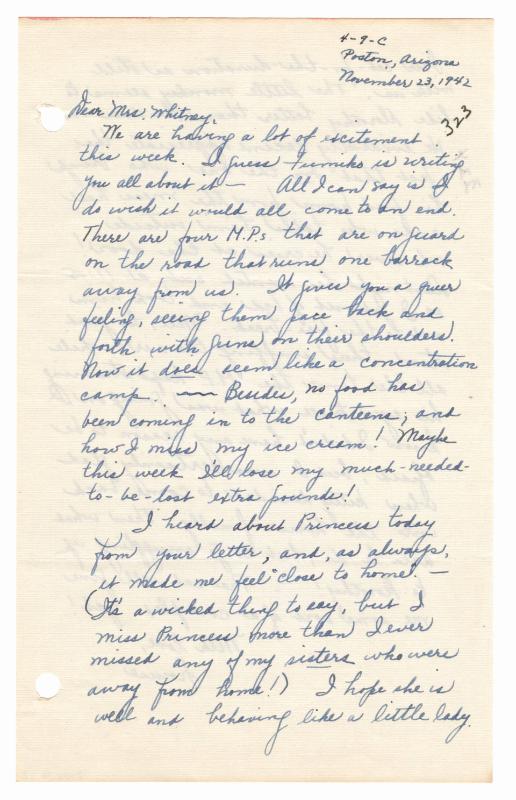 4-9-C
Poston, Arizona
November 23, 1942
323
Dear Mrs. Whitney,
We are having a lot of excitement
this week. I guess Fumiko is writing
you all about it — All I can say is I
do wish it would all come to an end.
There are four M.P.s that are on guard
on the road that runs one barrack
away from us. It gives you a queer
feeling, seeing them pace back and
forth with guns on their shoulders.
Now it does seem like a concentration
camp. — Besides, no food has
been coming in to the canteens, and
how I miss my ice cream! Maybe
this week I'll lose my much-needed-
to-be-lost extra pounds!
I heard about Princess today
from your letter, and, as always,
it made me feel "close to home". —
(It's a wicked thing to say, but I
miss Princess more than I ever
missed any of my sisters who were
away from home!) I hope she is
well and behaving like a little lady.